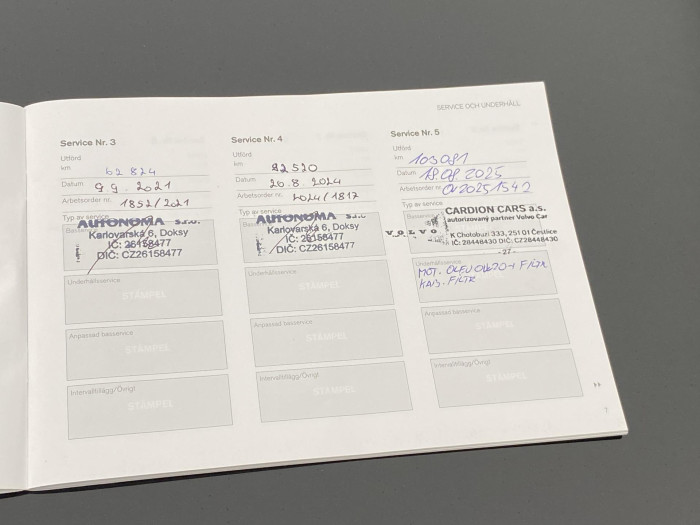 SERVICE OCH UNDERHÅLL
Service Nr. 3
Utförd
km 62 824
Datum 9 9. 2021
Arbetsorder nr. 1852/2021
Typ av service
AUTONOMA s.r.o.
Karlovarská 6, Doksy
IČ: 26158477
DIČ: CZ26158477
Underhållsservice
STÄMPEL
Anpassad basservice
STÄMPEL
Intervalltillägg/Övrigt
STÄMPEL
Service Nr. 4
Utförd
km 92 520
Datum 20.8. 2024
Arbetsorder nr. 2024/1817
Typ av service
AUTONOMA s.r.o.
Karlovarská 6, Doksy
IČ: 26158477
DIČ: CZ26158477
Underhållsservice
STÄMPEL
Anpassad basservice
STÄMPEL
Intervalltillägg/Övrigt
STÄMPEL
Service Nr. 5
Utförd
km 103 081
Datum 18.08 2025
Arbetsorder nr.
Typ av service
CARDION CARS a.s.
autorizovaný partner Volvo Car
VOLVO
K Chotobuzi 333, 251 01 Čestlice
IČ: 28448430 DIČ: CZ28448430
- 27 -
Underhållsservice
MOT. OLEJ FILTR
KAB. FILTR
Anpassad basservice
STÄMPEL
Intervalltillägg/Övrigt
STÄMPEL
7